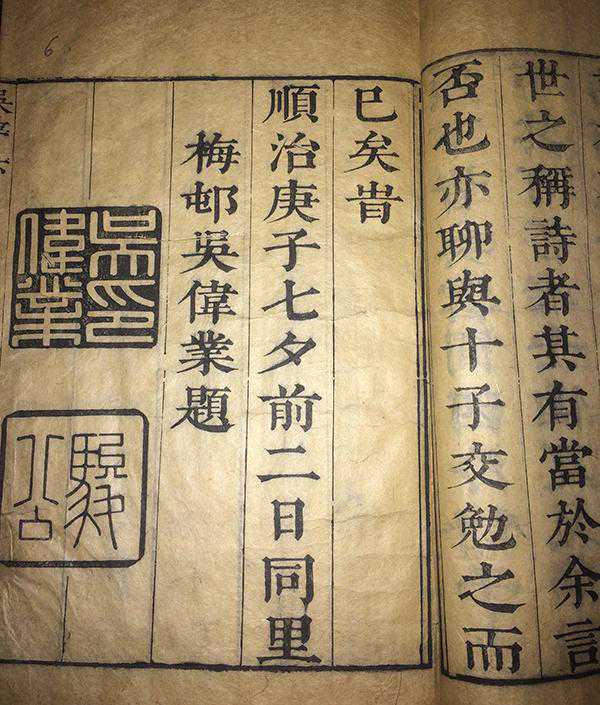 世之稱詩者其有當於余言
否也亦聊與十子交勉之而
已矣旹
順治庚子七夕前二日同里
梅邨吳偉業題
吳印
偉業
駿公
6